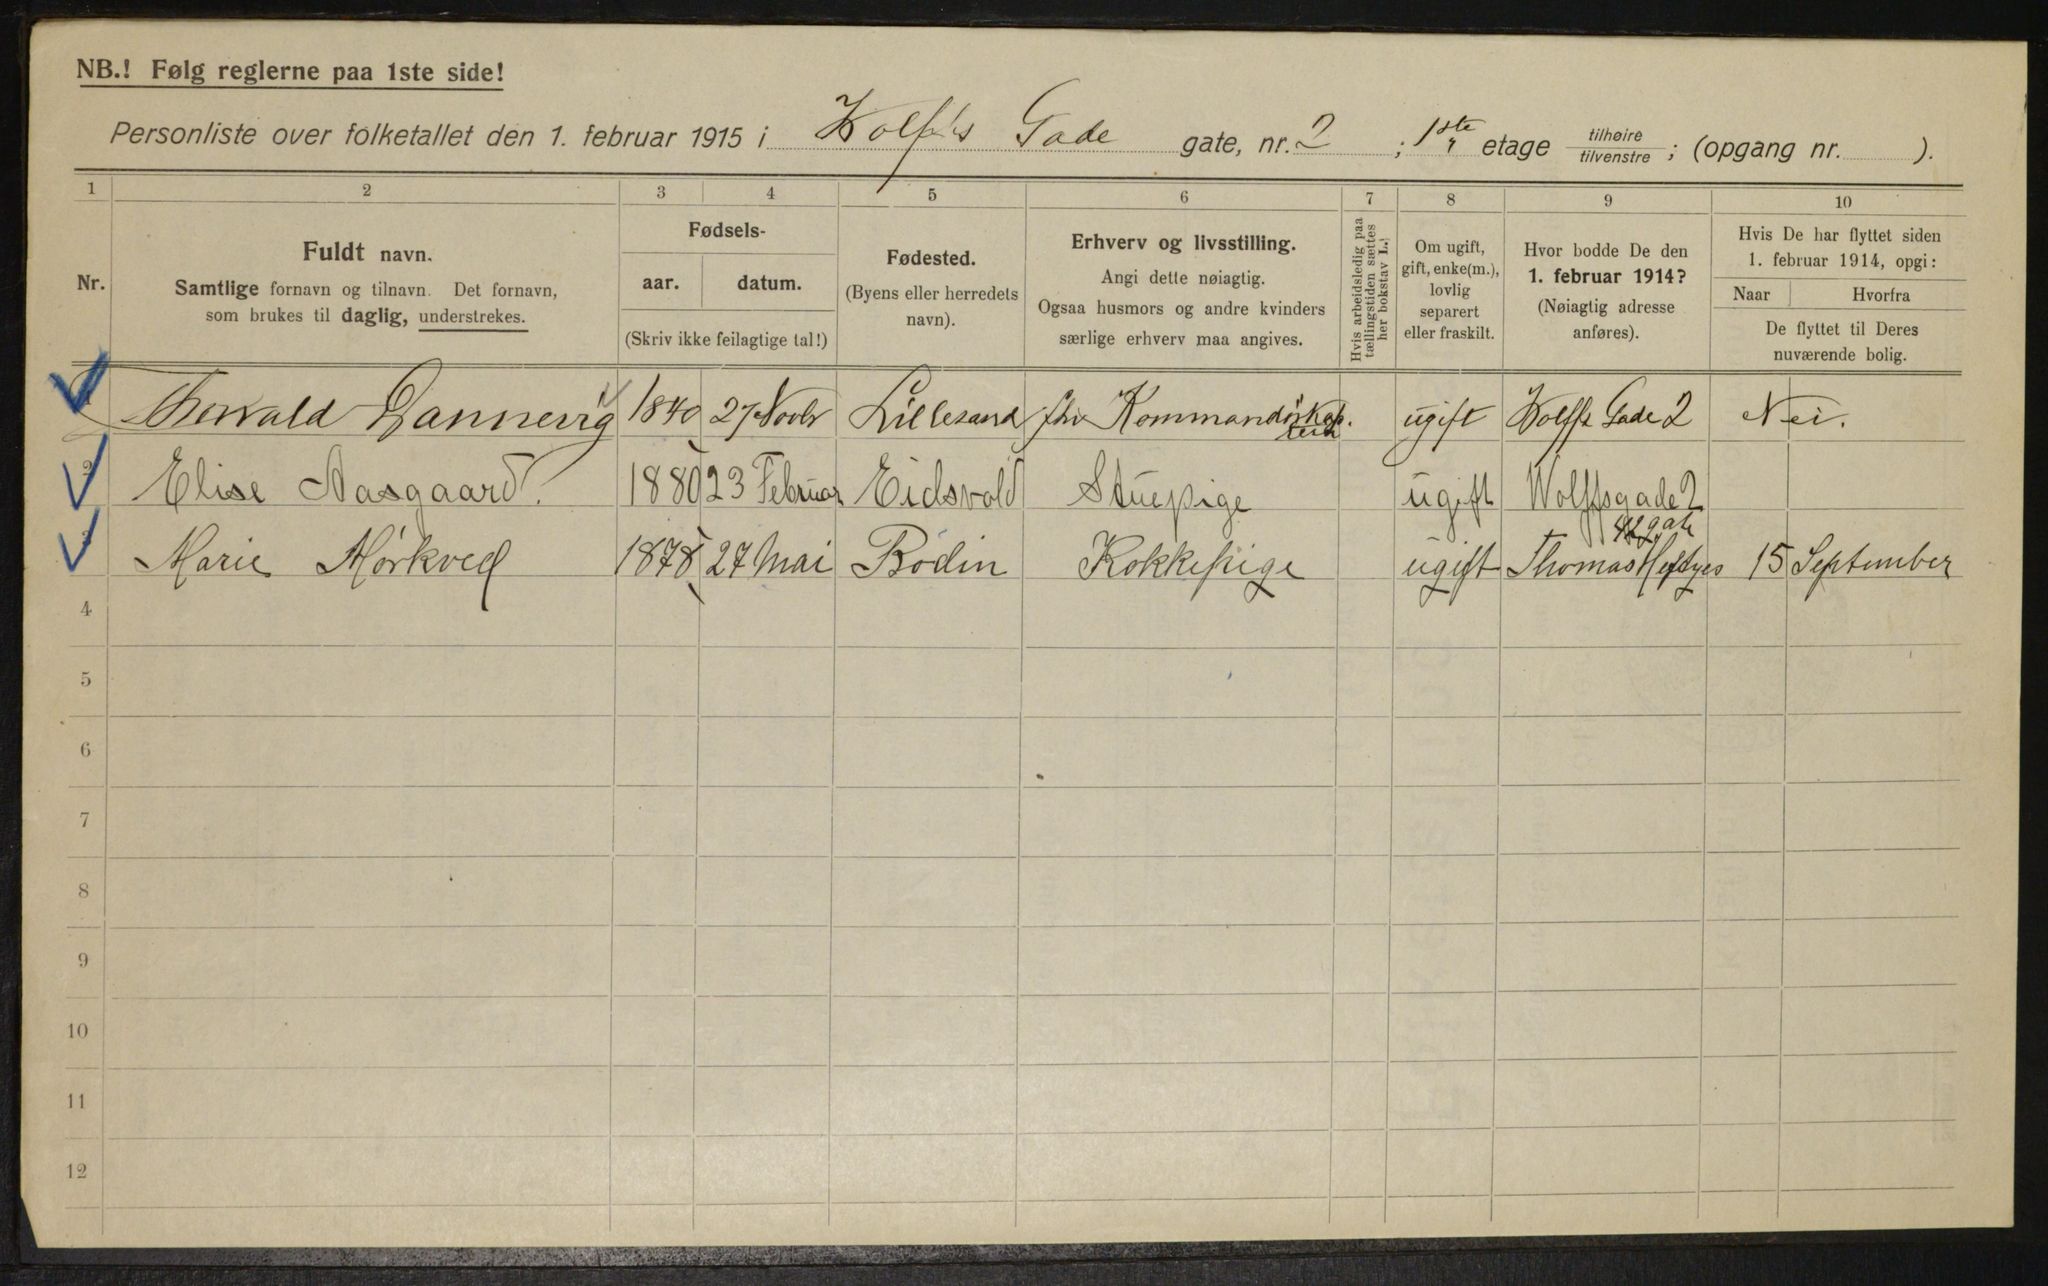 NB.! Følg reglerne paa 1ste side!
Personliste over folketallet den 1. februar 1915 i Wolffs Gade gate, nr. 2 ; 1ste etage tilhøire tilvenstre ; (opgang nr. ).
1 2 3 4 5 6 7 8 9 10
Nr.
Fuldt navn.
Samtlige fornavn og tilnavn. Det fornavn,
som brukes til daglig, understrekes.
Fødsels-
aar. datum.
(Skriv ikke feilagtige tal!)
Fødested.
(Byens eller herredets
navn).
Erhverv og livsstilling.
Angi dette nøiagtig.
Ogsaa husmors og andre kvinders
særlige erhverv maa angives.
Hvis arbeidsledig paa
tællingstiden sættes
her bokstav L.
Om ugift,
gift, enke(m.),
lovlig
separert
eller fraskilt.
Hvor bodde De den
1. februar 1914?
(Nøiagtig adresse
anføres).
Hvis De har flyttet siden
1. februar 1914, opgi:
Naar Hvorfra
De flyttet til Deres
nuværende bolig.
Thorvald Dannevig 1840 27 Novbr Lillesand fhv Kommandørkap. ugift Wolffs Gade 2 Nei.
2 Elise Aasgaard. 1880 23 Februar Eidsvold Stuepige ugift Wolffsgade 2
3 Marie Mørkved 1878 27 Mai Bodin Kokkepige ugift Thomas Heftyes 42 gate 15 September
4
5
6
7
8
9
10
11
12